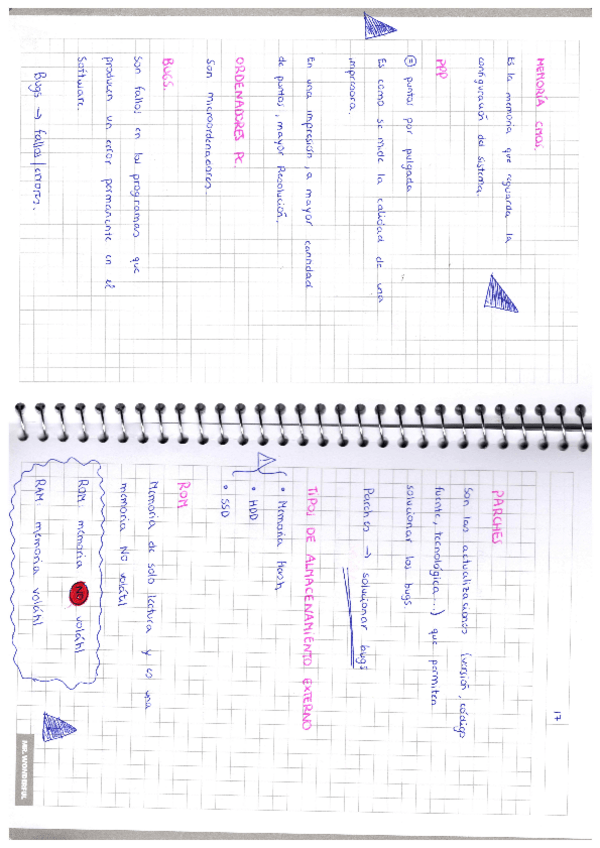 MEMORÍA CMOS.
Es la memoria que aguarda la
configuración del sistema.
PPP
puntos por pulgada
Es como se mide la calidad de una
impresora.
En una impresión, a mayor cantidad
de puntos, mayor Resolución.
ORDENADORES PC.
Son microordenadores.
BUGS.
Son fallos en los programas que
producen un error permanente en el
Software.
Bugs → fallos/errores.
17
PARCHES
Son las actualizaciones (versión, código
fuente, tecnológica...) que permiten
solucionar los bugs.
Parches → solucionar bugs
TIPOS DE ALMACENAMIENTO EXTERNO
• Memoria
• HDD
• SSD
ROM
Memoria de solo lectura y es una
memoria NO volátil
ROM: memoria NO volátil
RAM: memoria volátil
MR. WONDERFUL